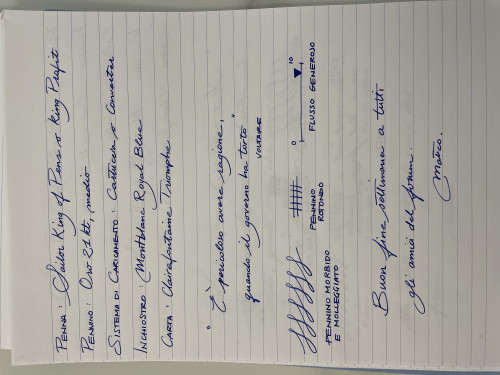 PENNA: Sailor King of Pens o King Profit
PENNINO: Oro 21 kt, medio
SISTEMA DI CARICAMENTO: Cartuccia o Converter
INCHIOSTRO: Montblanc Royal Blue
CARTA: Clairefontaine Triomphe
"È pericoloso avere ragione,
quando il governo ha torto"
VOLTAIRE
PENNINO MORBIDO
E MOLLEGGIATO
PENNINO
ROTONDO
0 10
FLUSSO GENEROSO
Buon fine settimana a tutti
gli amici del forum.
Marco.